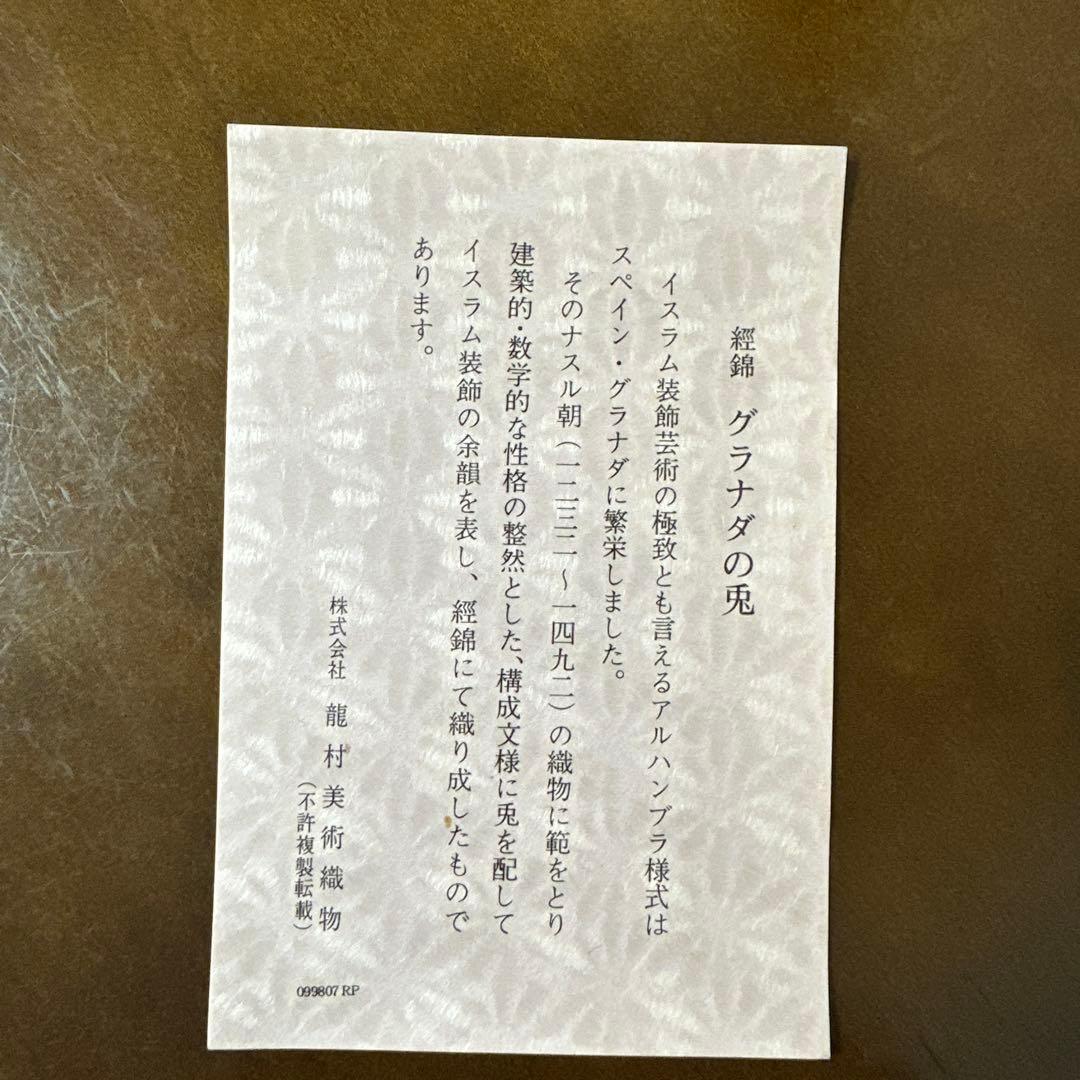 經錦 グラナダの兎
イスラム装飾芸術の極致とも言えるアルハンブラ様式は
スペイン・グラナダに繁栄しました。
そのナスル朝（一二三二～一四九二）の織物に範をとり
建築的・数学的な性格の整然とした、構成文様に兎を配して
イスラム装飾の余韻を表し、經錦にて織り成したもので
あります。
株式会社 龍村美術織物
（不許複製転載）
099807 RP